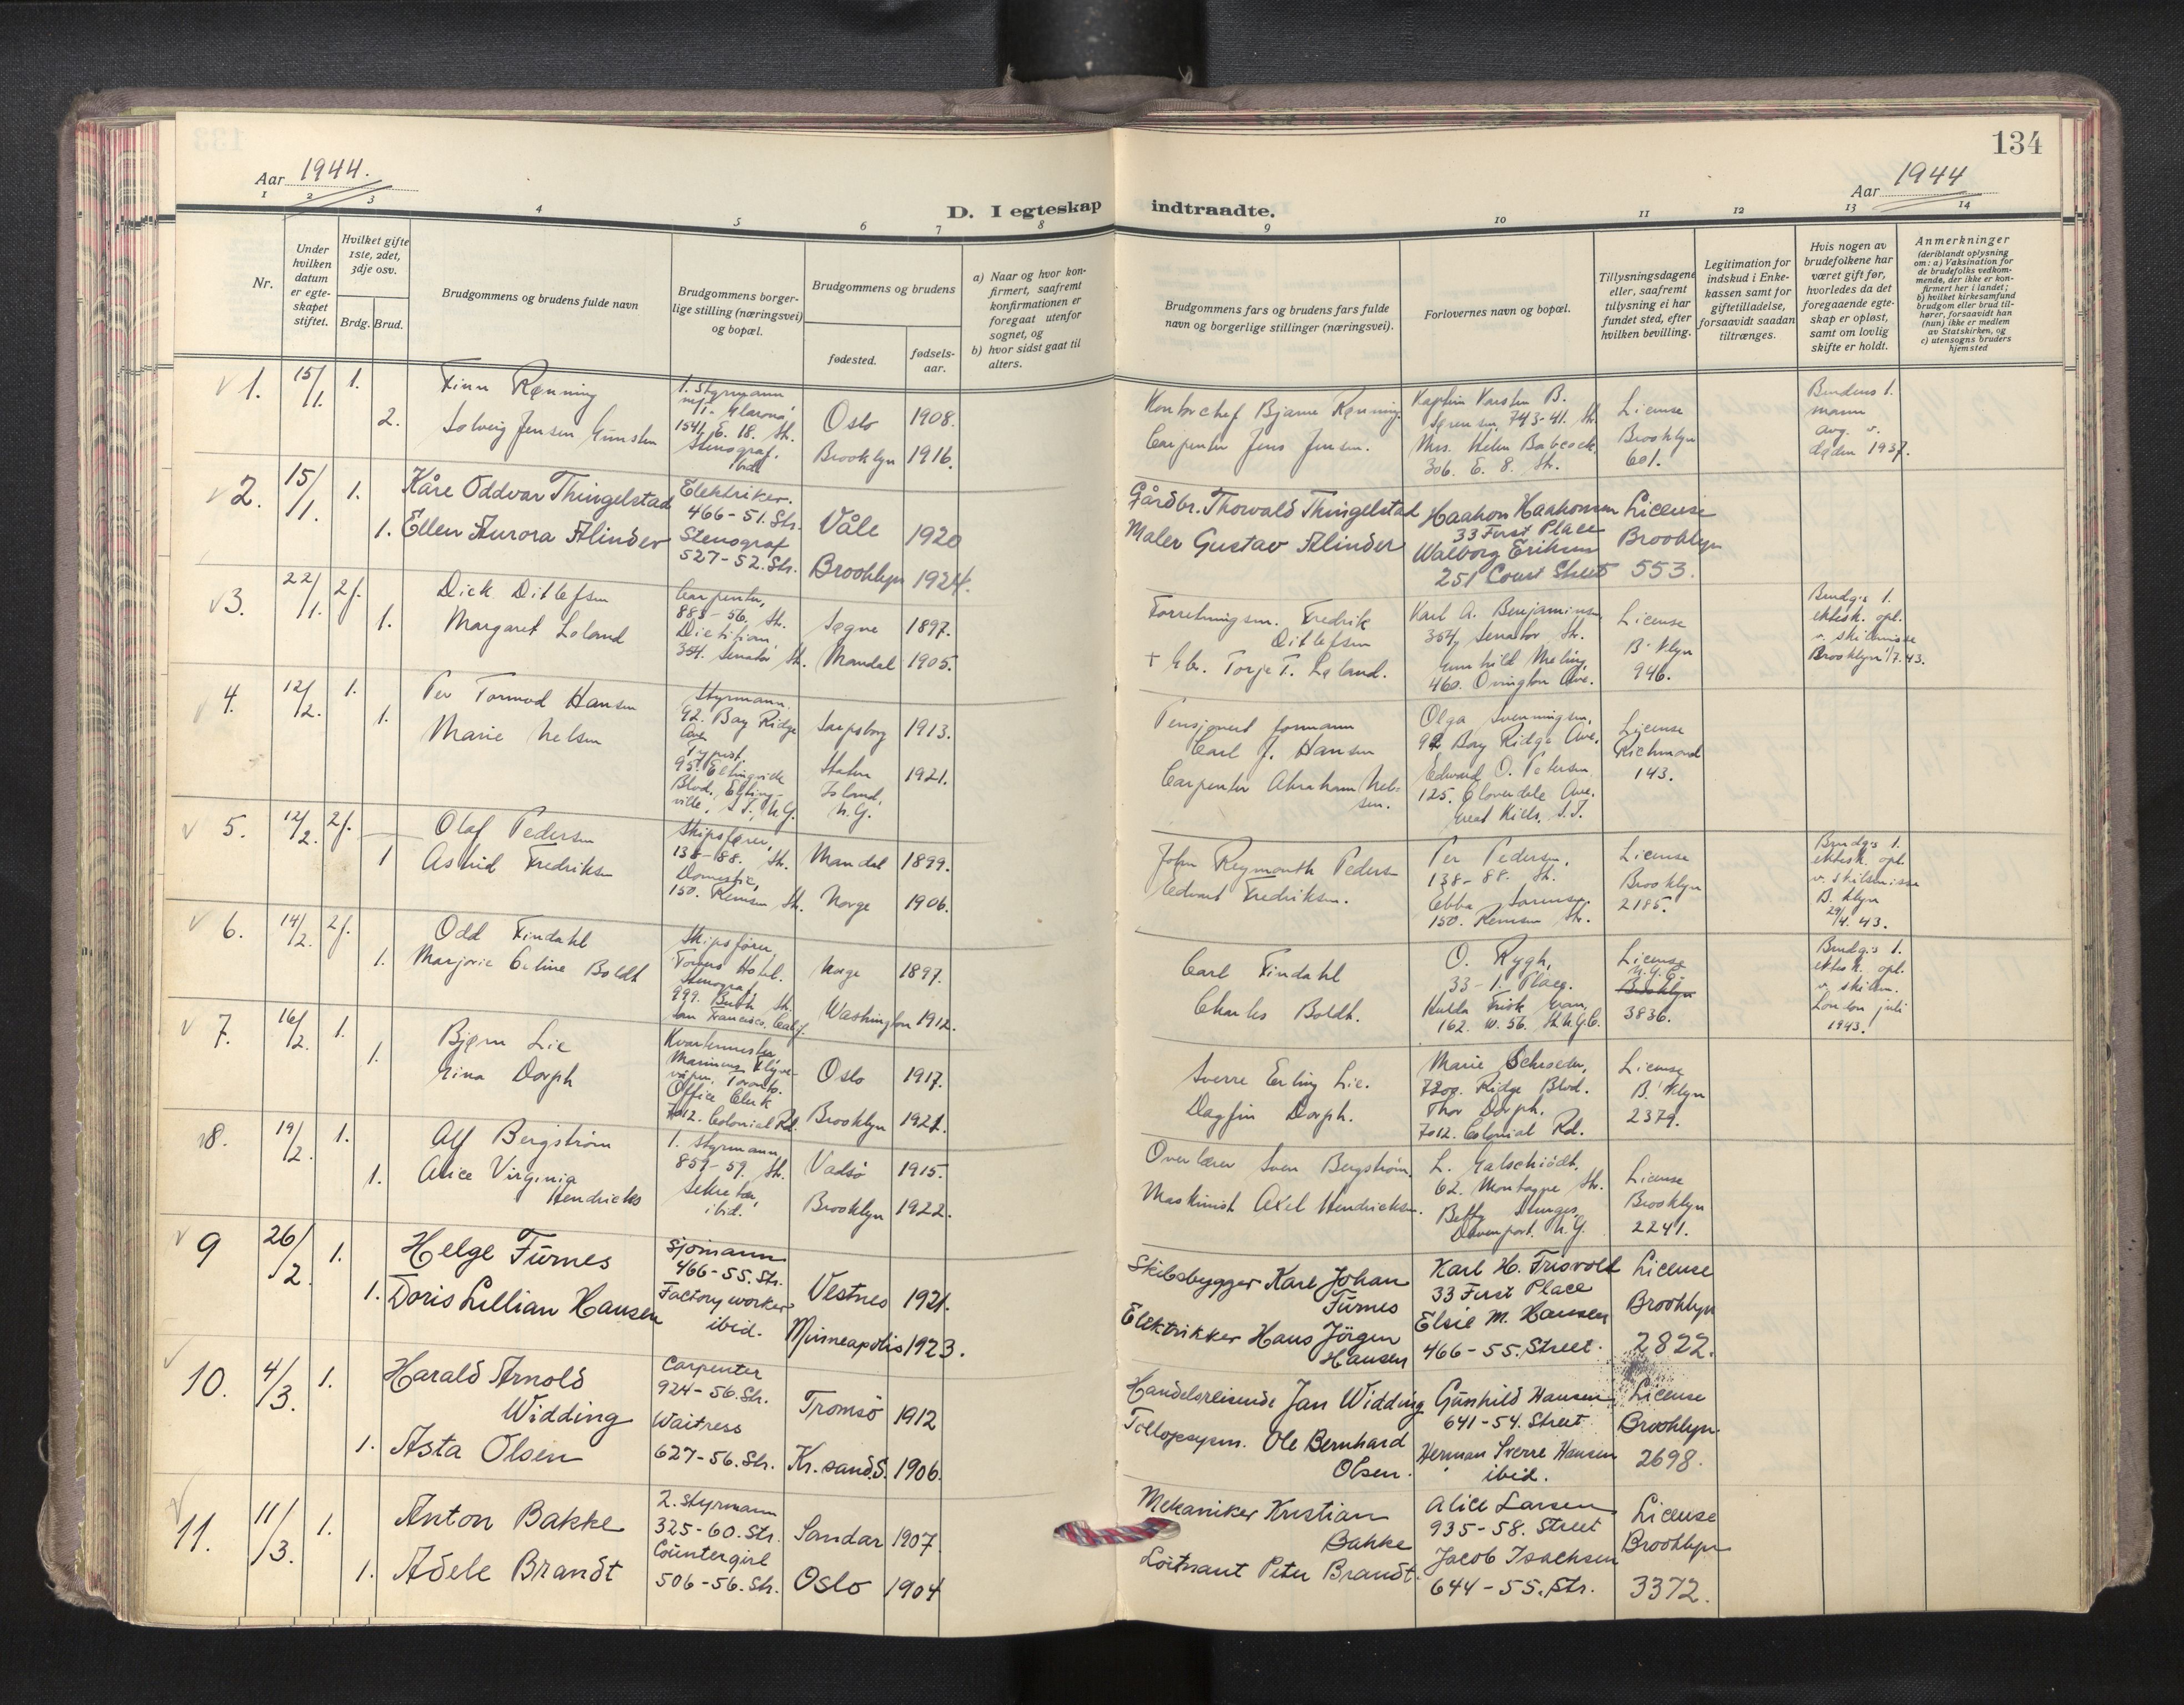 134
Aar 1944.
Aar 1944
D. I egteskap indtraadte.
1 2 3 4 5 6 7 8 9 10 11 12 13 14
Nr.
Under hvilken datum er egteskapet stiftet.
Hvilket gifte 1ste, 2det, 3dje osv.
Brdg. Brud.
Brudgommens og brudens fulde navn
Brudgommens borgerlige stilling (næringsvei) og bopæl.
Brudgommens og brudens
fødested.
fødselsaar.
a) Naar og hvor konfirmert, saafremt konfirmationen er foregaat utenfor sognet, og
b) hvor sidst gaat til alters.
Brudgommens fars og brudens fars fulde navn og borgerlige stillinger (næringsvei).
Forlovernes navn og bopæl.
Tillysningsdagene eller, saafremt tillysning ei har fundet sted, efter hvilken bevilling.
Legitimation for indskud i Enkekassen samt for giftetilladelse, forsaavidt saadan tiltrænges.
Hvis nogen av brudefolkene har været gift før, hvorledes da det foregaaende egteskap er opløst, samt om lovlig skifte er holdt.
Anmerkninger (deriblandt oplysning om: a) Vaksination for de brudefolks vedkommende, der ikke er konfirmert her i landet; b) hvilket kirkesamfund brudgom eller brud tilhører, forsaavidt han (hun) ikke er medlem av Statskirken, og c) utensogns bruders hjemsted
1. 15/1. 1. Finn Rønning 1. Styrmann 1541, E. 18. Str. Oslo 1908.
2. Solveig Jensen Stenograf, ibid Brooklyn 1916.
Kontorchef Bjarne Rønning
Carpenter Jens Jensen.
Kaptein Karsten B. Sørensen, 743-41. Str.
Mrs. Helen Babcock, 306. E. 8. Str.
License Brooklyn 601.
Brudens 1. mann avg. v. døden 1937.
2. 15/1. 1. Kåre Oddvar Thingelstad Elektriker. 466-51. Str. Våle 1920
1. Ellen Aurora Alinder Stenograf 527-52. Str. Brooklyn 1924.
Gårdbr. Thorvald Thingelstad
Maler Gustav Alinder
Haakon Haakonsen 33 First Place
Walborg Eriksen 251 Court Street
License Brooklyn 553.
3. 22/1. 2f. Dick Ditlefsen Carpenter, 883-56. Str. Søgne 1897.
1. Margaret Løland Dietitian 354. Senator Str. Mandal 1905.
Forretningsm. Fredrik Ditlefsen
+ Gbr. Torje T. Løland.
Karl A. Benjaminsen 354, Senator Str.
Gunhild Meling, 460. Ovington Ave.
License B'klyn 946.
Brudg.s 1. ektesk. opl. v. skilsmisse Brooklyn 1/7. 43.
4. 12/2. 1. Per Tormod Hansen Styrmann. 92. Bay Ridge Ave Sarpsborg 1913.
1. Marie Nelsen Typist, 95. Eltingville Blvd., Eltingville, S.I., N.Y. Staten Island, N.Y. 1921.
Pensjonert formann Carl J. Hansen
Carpenter Abraham Nelsen.
Olga Svenningsen, 92 Bay Ridge Ave.
Edward O. Petersen 125. Cloverdale Ave. Great Kills, S.I.
License Richmond 143.
5. 12/2. 2f. Olaf Pedersen Skipsfører, 138-88. Str. Mandal 1899.
1 Astrid Fredriksen Domestic, 150. Remsen Str. Norge 1906.
John Reymonth Pedersen
Edvart Fredriksen.
Per Pedersen, 138-88. Str.
Ebba 150. Remsen Str.
License Brooklyn 2185.
Brudg.s 1. ektesk. opl. v. skilsmisse B.klyn 29/4. 43.
6. 14/2. 2f. Odd Findahl Skipsfører, Towers Hotel. Norge 1897.
1. Marjorie Celine Boldt Stenograf, 999. Bush Str. San Francisco, Calif. Washington 1912.
Carl Findahl
Charles Boldt.
O. Rygh, 33-1. Place.
Hulda Frisk Evan, 162. W. 56. Str. N.Y.C.
License N.Y.C. Brooklyn 3836.
Brudg.s 1. ektesk. opl. v. skilsm. London juli 1943.
7. 16/2. 1. Bjørn Lie Kvartermester, Marinens Flyvevåpen. Toronto. Oslo 1917.
1. Nina Dorph Office Clerk 7012. Colonial Rd. Brooklyn 1921.
Sverre Erling Lie.
Dagfin Dorph.
Marie Schroeder, 7200. Ridge Blvd.
Thor Dorph. 7012. Colonial Rd.
License B.'klyn 2379.
8. 19/2. 1. Alf Bergström 1. styrmann, 859-59. Str. Vadsö 1915.
1. Alice Virginia Hendricks Sekretær, ibid. Brooklyn 1922.
Overlærer Sven Bergström.
Maskinist Axel Hendricksen.
L. Galschiödt, 62. Montague Str.
Betty Sturges, Davenport. N.Y.
License Brooklyn 2241.
9 26/2. 1. Helge Fürnes Sjömann 466-55. Str. Vestnes 1921.
1. Doris Lillian Hansen Factory worker ibid. Minneapolis 1923.
Skibsbygger Karl Johan Fürnes
Elektrikker Hans Jörgen Hansen
Karl H. Frisvold 33 First Place
Elsie M. Hansen 466-55. Street.
License Brooklyn 2822.
10. 4/3. 1. Harald Arnold Widding Carpenter 924-56. Str. Tromsö 1912
1. Asta Olsen Waitress 627-56. Str. Kr.sand S. 1906.
Handelsreisende Jan Widding
Tollopsysm. Ole Bernhard Olsen.
Gunhild Hansen 641-54. Street
Herman Sverre Hansen ibid.
License Brooklyn. 2698.
11. 11/3. 1. Anton Bakke 2. styrmann 325-60. Str. Sandar 1907.
1. Adele Brandt Countergirl 506-56. Str. Oslo 1904
Mekaniker Kristian Bakke
Löitnant Peter Brandt.
Alice Larsen 935-58. Street
Jacob Isachsen 644-55. Str.
License Brooklyn 3372.